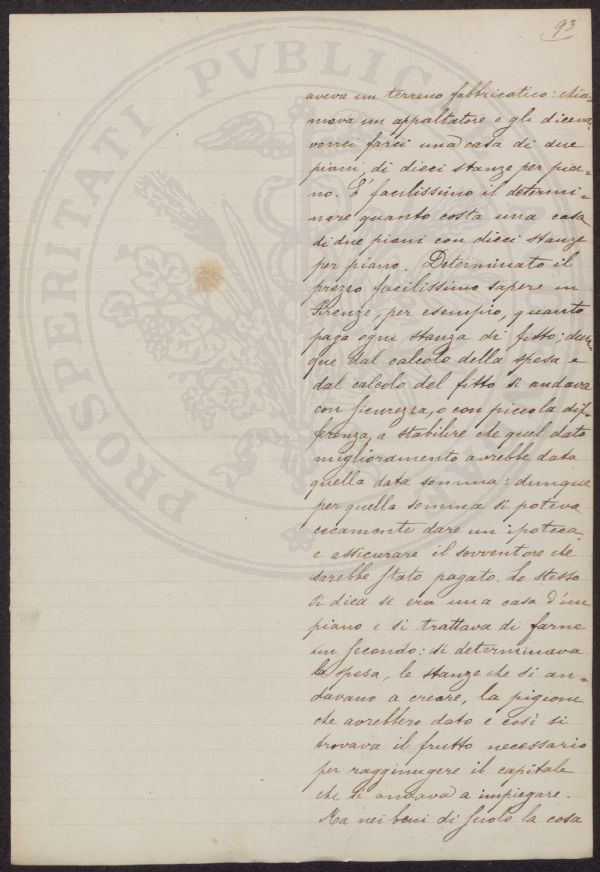 93
aveva un terreno fabbricatico: chia=
mava un appaltatore e gli diceva:
vorrei farci una casa di due
piani, di dieci stanze per pia=
no. E' facilissimo il determi=
nare quanto costa una casa
di due piani con dieci stanze
per piano. Determinato il
prezzo facilissimo sapere in
Firenze, per esempio, quanto
paga ogni stanza di fitto; dun=
que dal calcolo della spesa e
dal calcolo del fitto si andava
con sicurezza, o con piccola dif=
ferenza, a stabilire che quel dato
miglioramento avrebbe data
quella data somma: dunque
per quella somma si poteva
cecamente dare un'ipoteca,
e assicurare il sovventore che
sarebbe stato pagato. Lo stesso
si dica se era una casa d'un
piano e si trattava di farne
un secondo: si determinava
la spesa, le stanze che si an=
davano a creare, la pigione
che avrebbero dato e così si
trovava il frutto necessario
per raggiungere il capitale
che si andava a impiegare.
Ma nei beni di suolo la cosa
PROSPERITATI PVBLIC